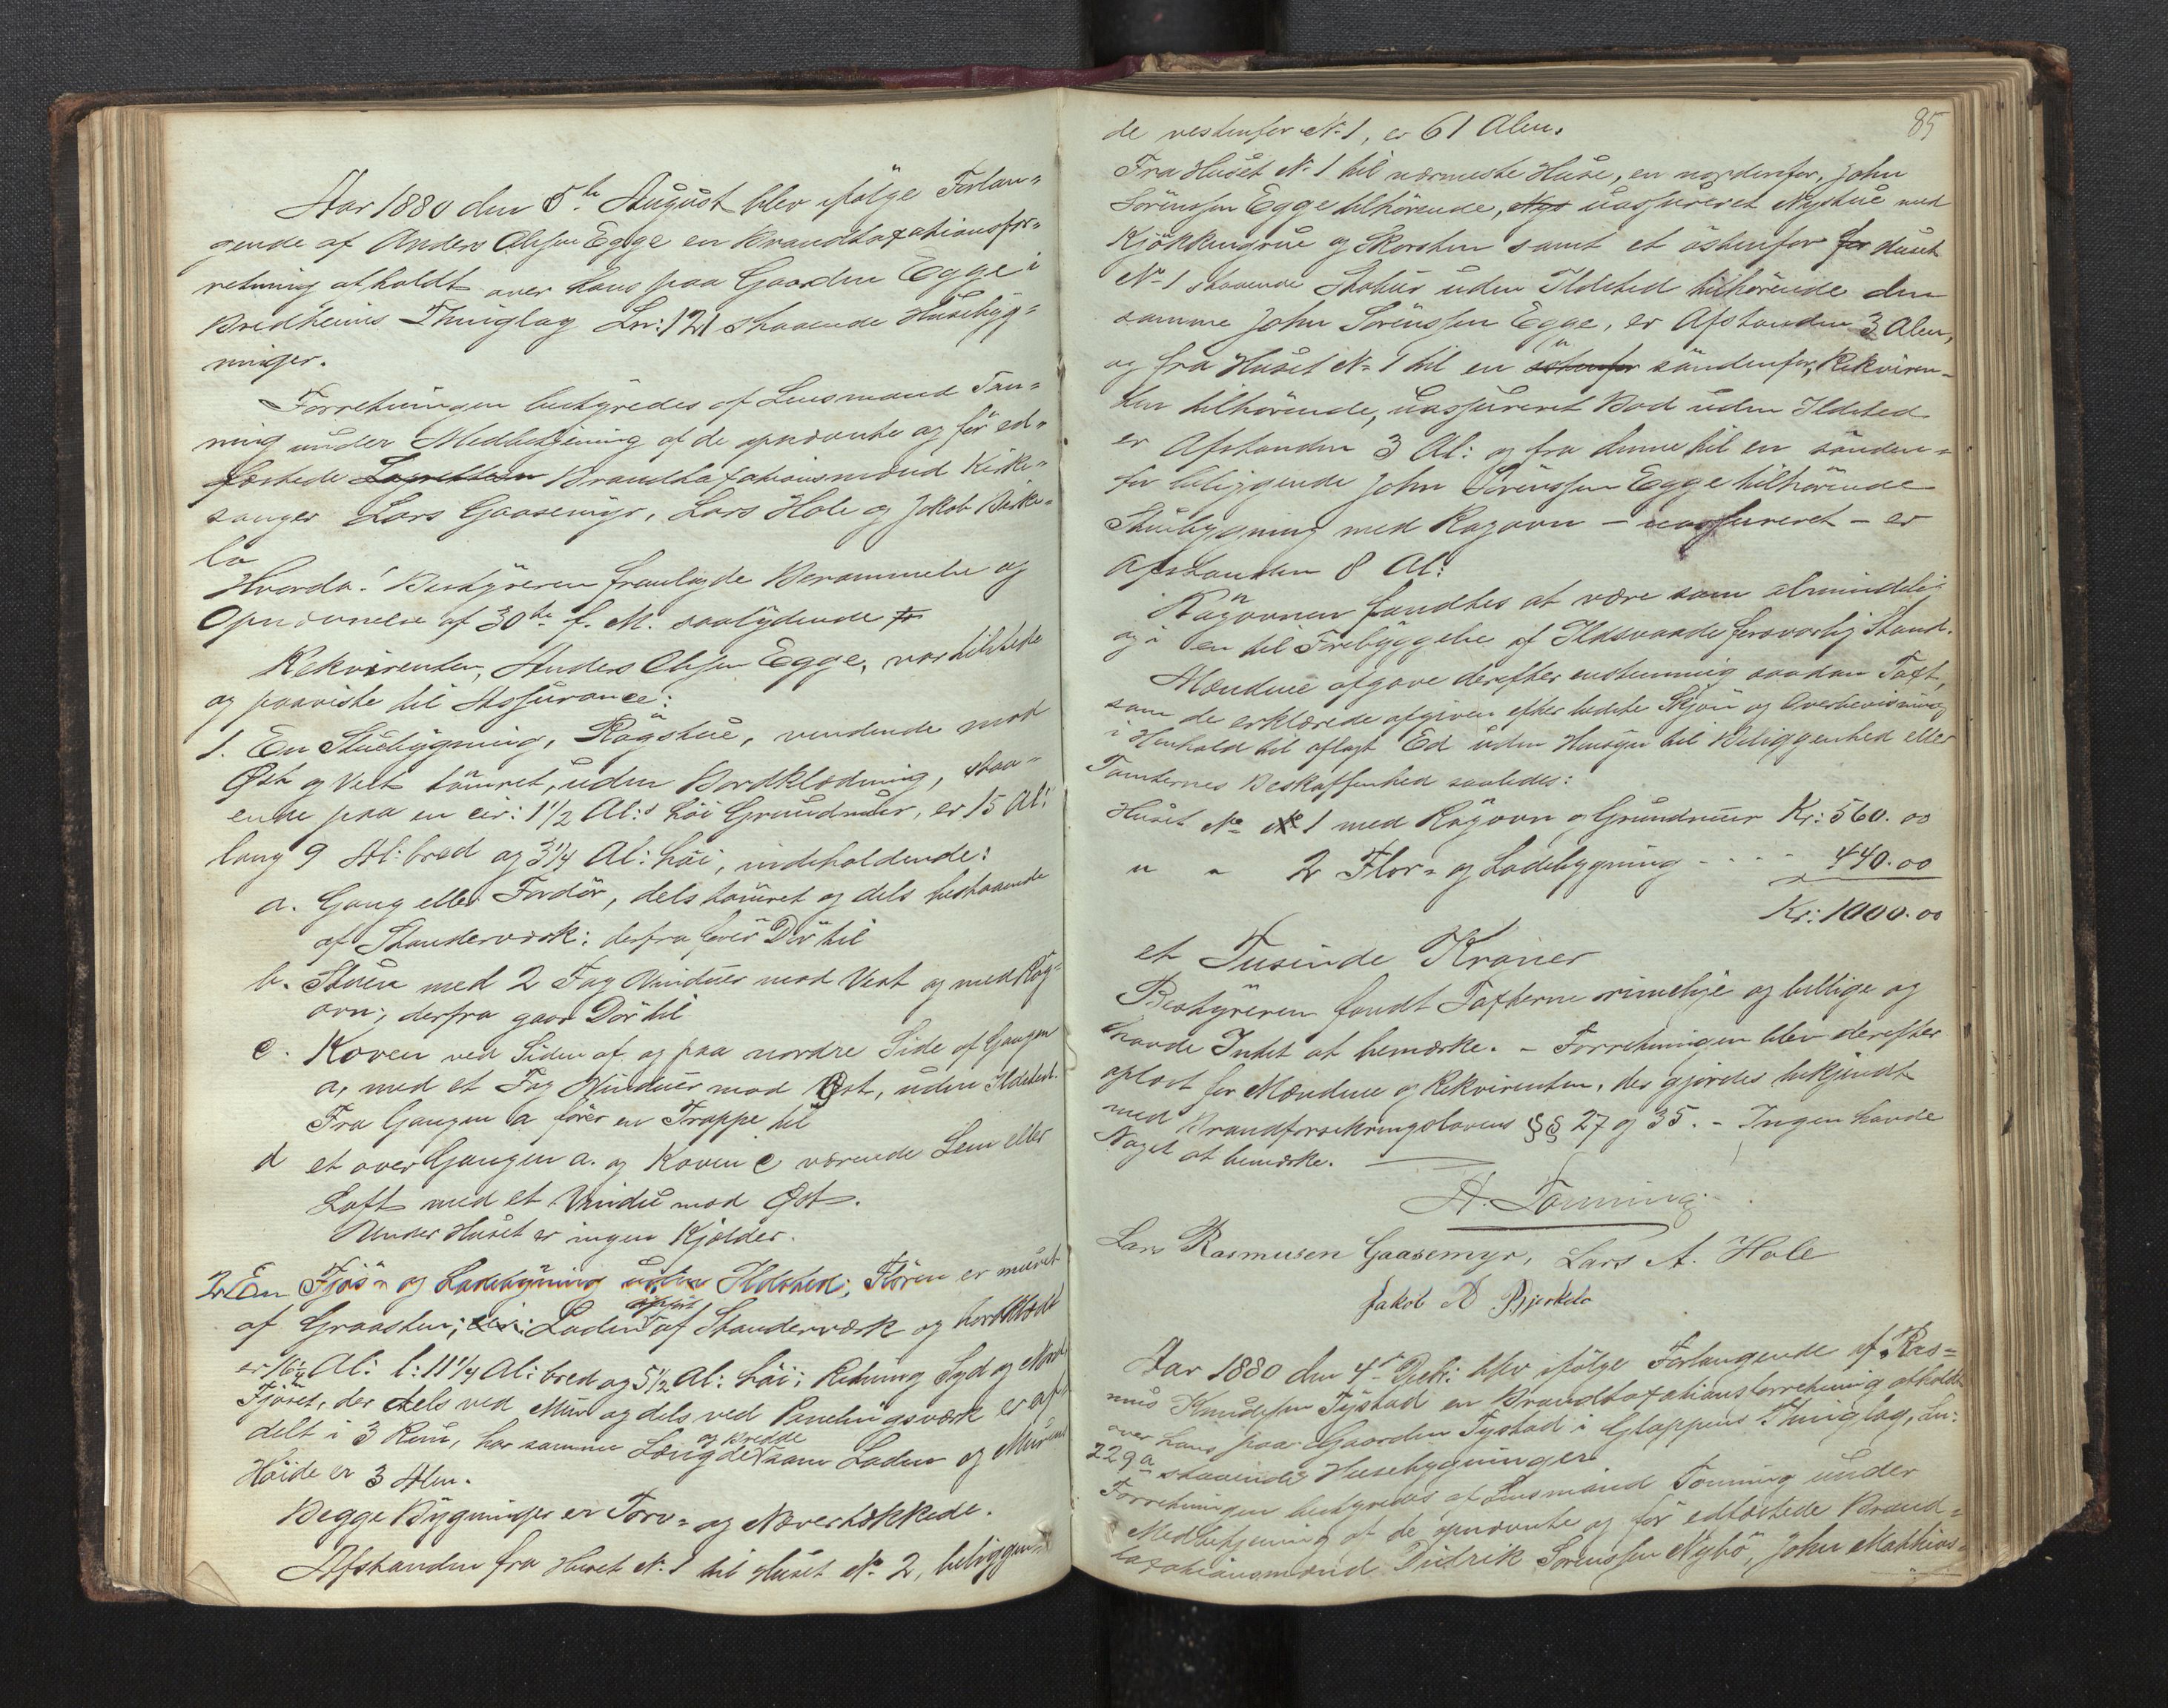 Aar 1880 den 5te August blev ifölge Forlan-
gende af Anders Olsen Egge en Brandtaxationsfor-
retning afholdt over hans paa Gaarden Egge i
Bredheims Thinglag Lnr: 121 staaende Husebyg-
ninger.
Forretningen bestyredes af Lensmand Ton-
ning under Medbetjening af de opnævnte og för ed-
fæstede Lagrettem Brandtaxationsmænd Kirke-
sanger Lars Gaasemyr, Lars Hole og Jakob Birke-
lo
Hvorda! Bestyreren fremlagde Berammelse og
Opnævnelse af 30te f. M. saalydende
Rekvirenten, Anders Olsen Egge, var tilstede
og paaviste til Assurance:
1. En Stuebygning, Rögstue, vendende mod
Øst og Vest tömret, uden Bordklædning, staa-
ende paa en cir: 1 1/2 Al:s höi Grundmuur, er 15 Al:
lang 9 Al: bred og 3 1/4 Al: höi, indeholdende:
a. Gang eller Fordör, dels tömret og dels bestaaende
af Standerværk; derfra förer Dör til
b. Stuen med 2 Fag Vinduer mod Vest og med Rög-
ovn; derfra gaar Dör til
c. Koven ved Siden af og paa nordre Side af Gangen
a, med et Fag Vinduer mod Øst, uden Ildsted.
Fra Gangen a förer en Trappe til
d et over Gangen a. og Koven c værende Lem eller
Loft med et Vindu mod Øst.
Under Huset er ingen Kjelder.
2. En Fjös- og Ladebygning uden Ildsted; Flören er muret
af Graasten; Laden opfört af Standerværk og bordklædt
er 16 1/4 Al: l: 11 1/4 Al: bred og 5 1/2 Al: höi; Retning Syd og Nord
Fjöset, der dels ved Muur og dels ved Panelingsværk er af-
delt i 3 Rum, har samme Længde og Bredde som Laden og Murens
Höide er 3 Alen.
Begge Bygninger er Torv- og Nævertækkede.
Afstanden fra Huset No 1 til Huset No 2, beliggen-
85
de vestenfor No 1, er 61 Alen.
Fra Huset No 1 til nærmeste Huse, en nordenfor, John
Sörenssen Egge tilhörende, Nys uassureret Nystue med
Kjökkengrue og Skorsten samt et östenfor for Huset
No 1 staaende Stabur uden Ildsted tilhörende den
samme John Sörenssen Egge, er Afstanden 3 Alen,
og fra Huset No 1 til en östenfor söndenfor, Rekviren-
ten tilhörende, uassureret Bod uden Ildsted
er Afstanden 3 Al: og fra denne til en sönden-
for beliggende John Sörenssen Egge tilhörende
Stuebygning med Rögovn – uassureret – er
Afstanden 8 Al:
Rögovnen fandtes at være som almindelig
og i en til Forebyggelse af Ildsvaade forsvarlig Stand.
Mændene afgave derefter enstemmig saadan Taxt,
som de erklærede afgiven efter bedste Skjön og Overbevisning
i Henhold til aflagt Ed uden Hensyn til Beliggenhed eller
Tomternes Beskaffenhed saaledes:
Huset No 1 med Rögovn og Grundmuur Kr: 560. 00
" " 2 Flor- og Ladebygning - - - - 440. 00
Kr: 1000. 00
et Tusinde Kroner
Bestyreren fandt Taxterne rimelige og billige og
havde Intet at bemærke. – Forretningen blev derefter
oplæst for Mændene og Rekvirenten, der gjordes bekjendt
med Brandforsikringslovens §§ 27 og 35. – Ingen havde
Noget at bemærke.
A. Tonning
Lars Rasmusen Gaasemyr, Lars A. Hole
Jakob A Bjerkelo
Aar 1880 den 4de Decbr: blev ifölge Forlangende af Ras-
mus Knudsen Tystad en Brandtaxationsforretning afholdt
over hans paa Gaarden Tystad i Gloppens Thinglag, Lnr:
229a staaende Husebygninger
Forretningen bestyredes af Lensmand Tonning under
Medbetjening af de opnævnte og för edfæstede Brand-
taxationsmænd Didrik Sörenssen Nybö, John Matthias-